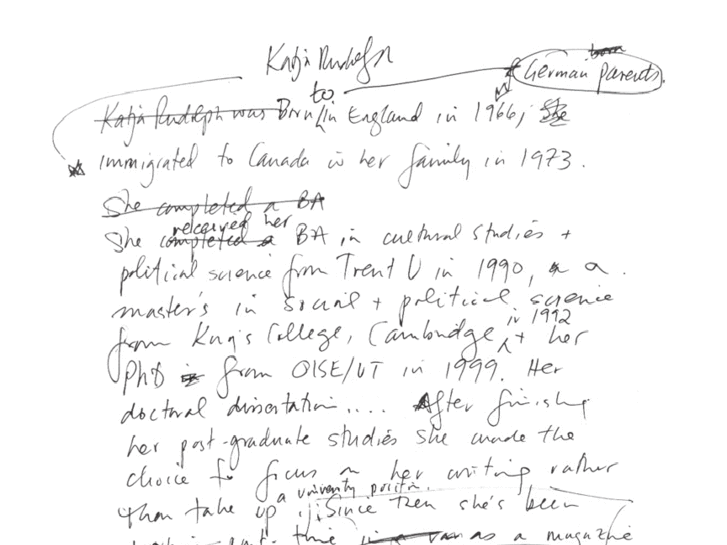 Katja Rudolph
to German born parents.
Katja Rudolph was Born in England in 1966, She
immigrated to Canada w her family in 1973.
She completed a BA
received her
She completed a BA in cultural studies +
political science from Trent U in 1990, a a
master's in social + political science
in 1992
from King's College, Cambridge, + her
PhD in from OISE/UT in 1999. Her
doctoral dissertation.... After finishing
her post-graduate studies she made the
choice to focus on her writing rather
a university position.
than take up Since then she's been
time as a magazine